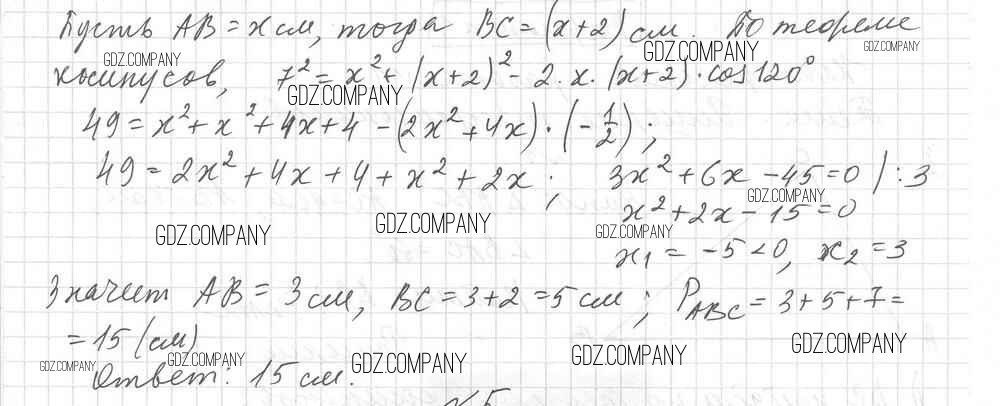 Пусть AB = x см, тогда BC = (x+2) см. По теореме
косинусов, 7² = x² + (x+2)² - 2·x·(x+2)·cos120°
49 = x² + x² + 4x + 4 - (2x² + 4x)·(-1/2);
49 = 2x² + 4x + 4 + x² + 2x; 3x² + 6x - 45 = 0 | :3
x² + 2x - 15 = 0
x₁ = -5 < 0, x₂ = 3
Значит AB = 3 см, BC = 3+2 = 5 см; P_ABC = 3+5+7 =
= 15 (см)
Ответ: 15 см.
GDZ.COMPANY
GDZ.COMPANY
GDZ.COMPANY
GDZ.COMPANY
GDZ.COMPANY
GDZ.COMPANY
GDZ.COMPANY
GDZ.COMPANY
GDZ.COMPANY
GDZ.COMPANY
GDZ.COMPANY
GDZ.COMPANY
GDZ.COMPANY